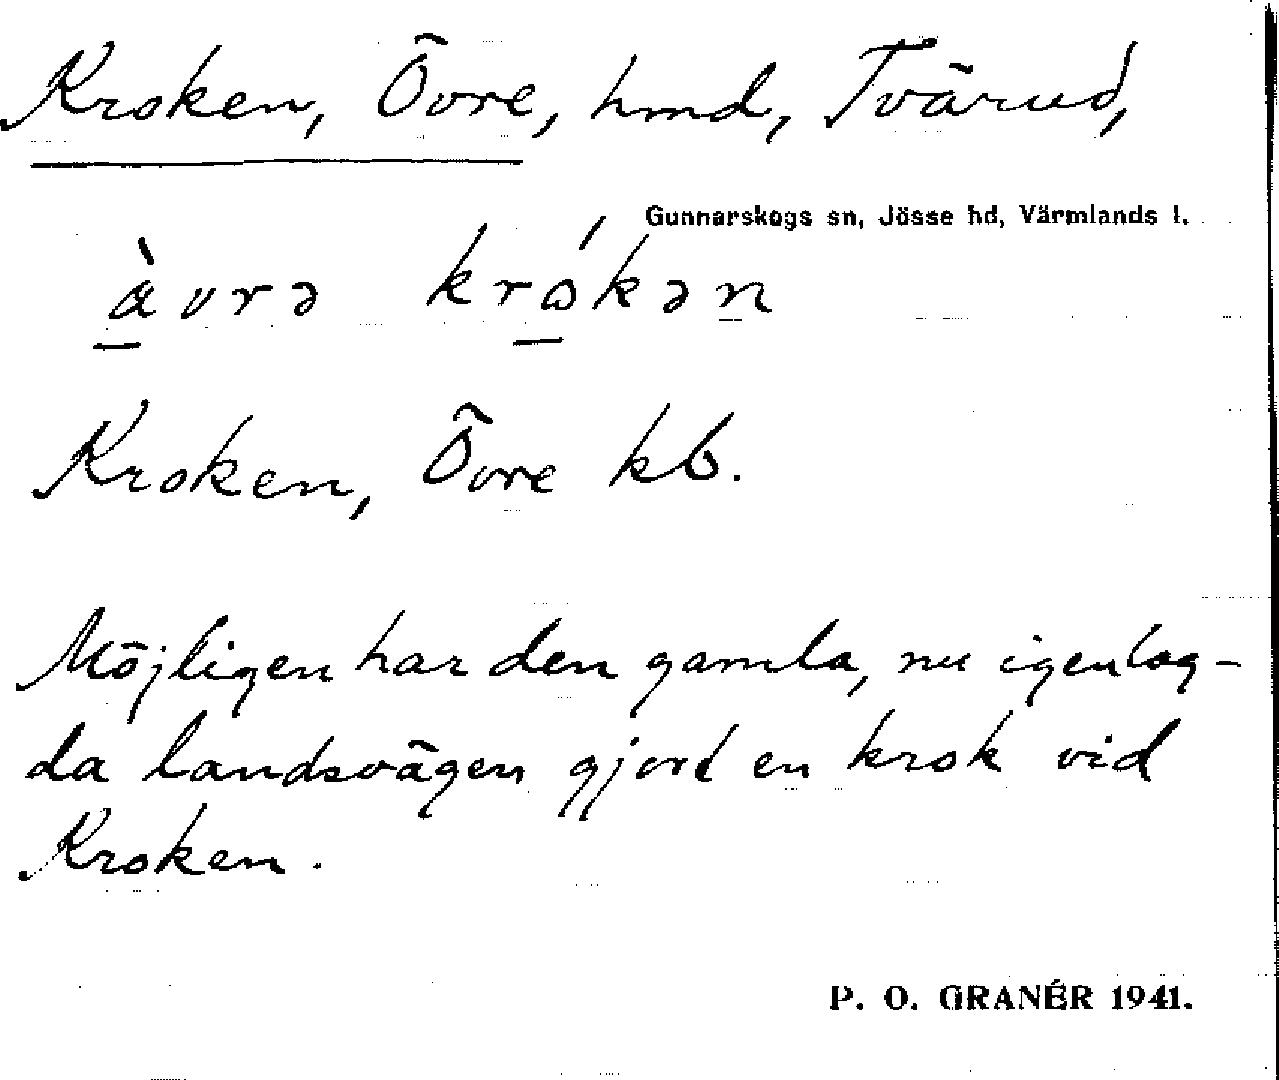 Kroken, Övre, hmd, Tvärud,
Gunnarskogs sn, Jösse hd, Värmlands l.
àvrə krókən
Kroken, Övre kb.
Möjligen har den gamla, nu igenlag-
da landsvägen gjort en krok vid
Kroken.
P. O. GRANÉR 1941.